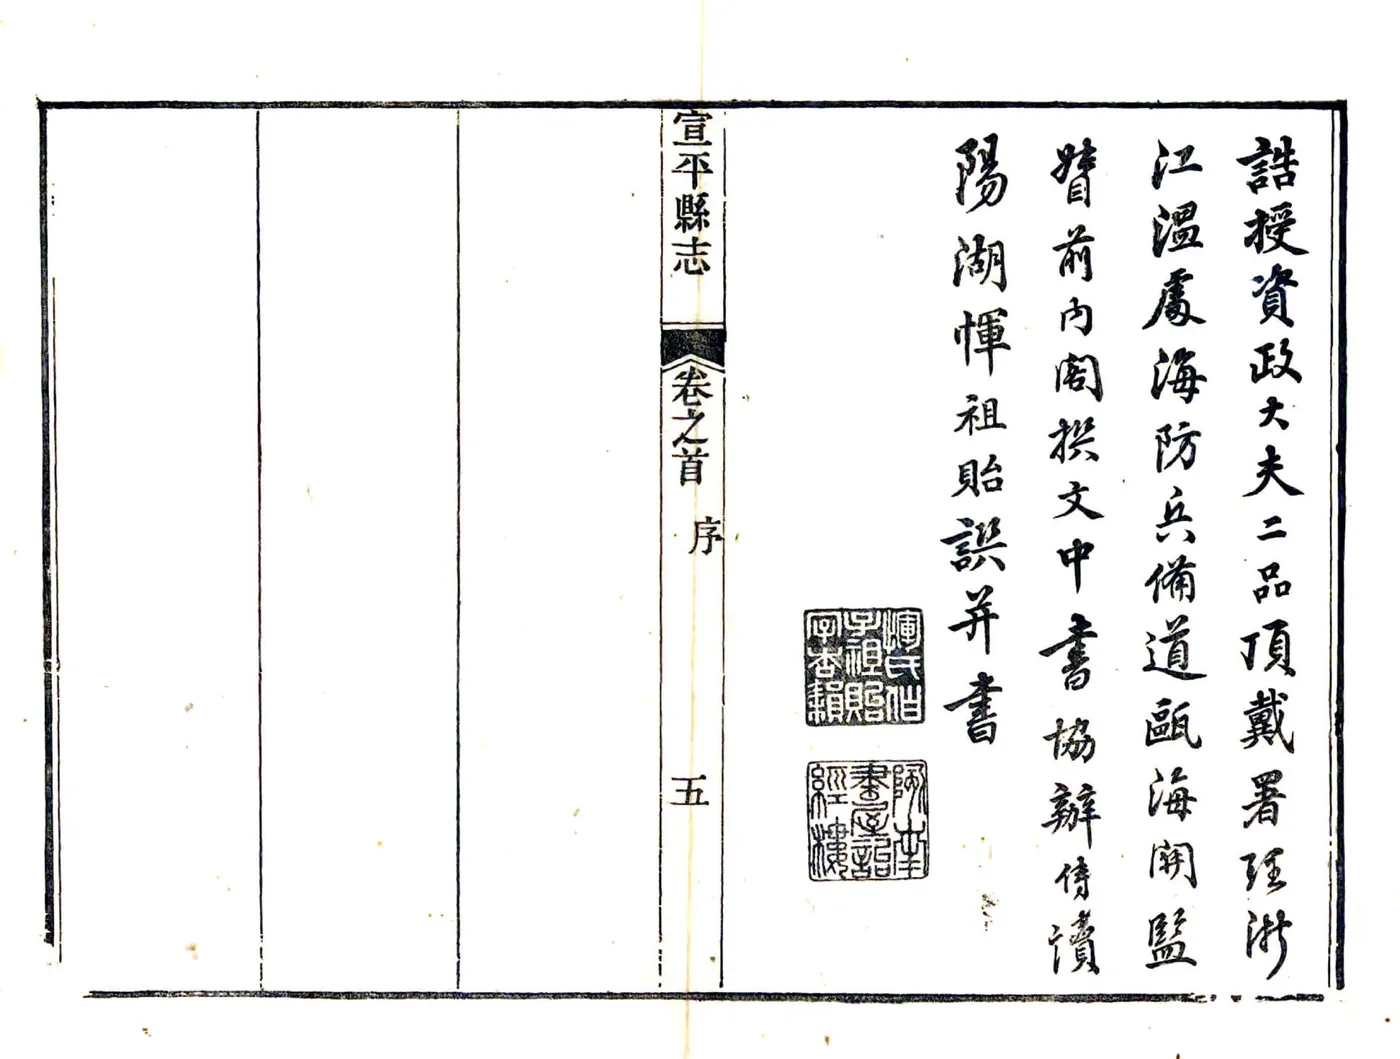 誥授資政大夫二品頂戴署理浙
江溫處海防兵備道甌海關監
督前內閣撰文中書協辦侍讀
陽湖惲祖貽譔并書
惲氏伯
子祖貽
字杏
南
書屋詒
經樓
宣平縣志
卷之首
序
五